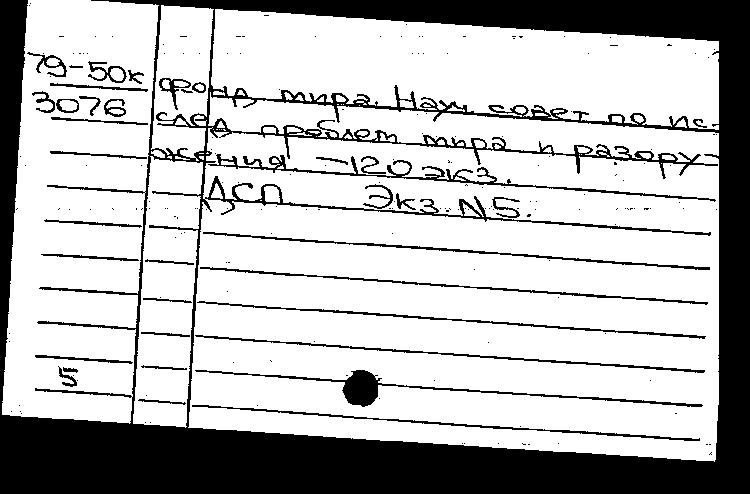 79-50к фонд мира. Науч. совет по ис-
3076 след. проблем мира и разору-
жения. – 120 экз.
ДСП Экз. N 5.
5